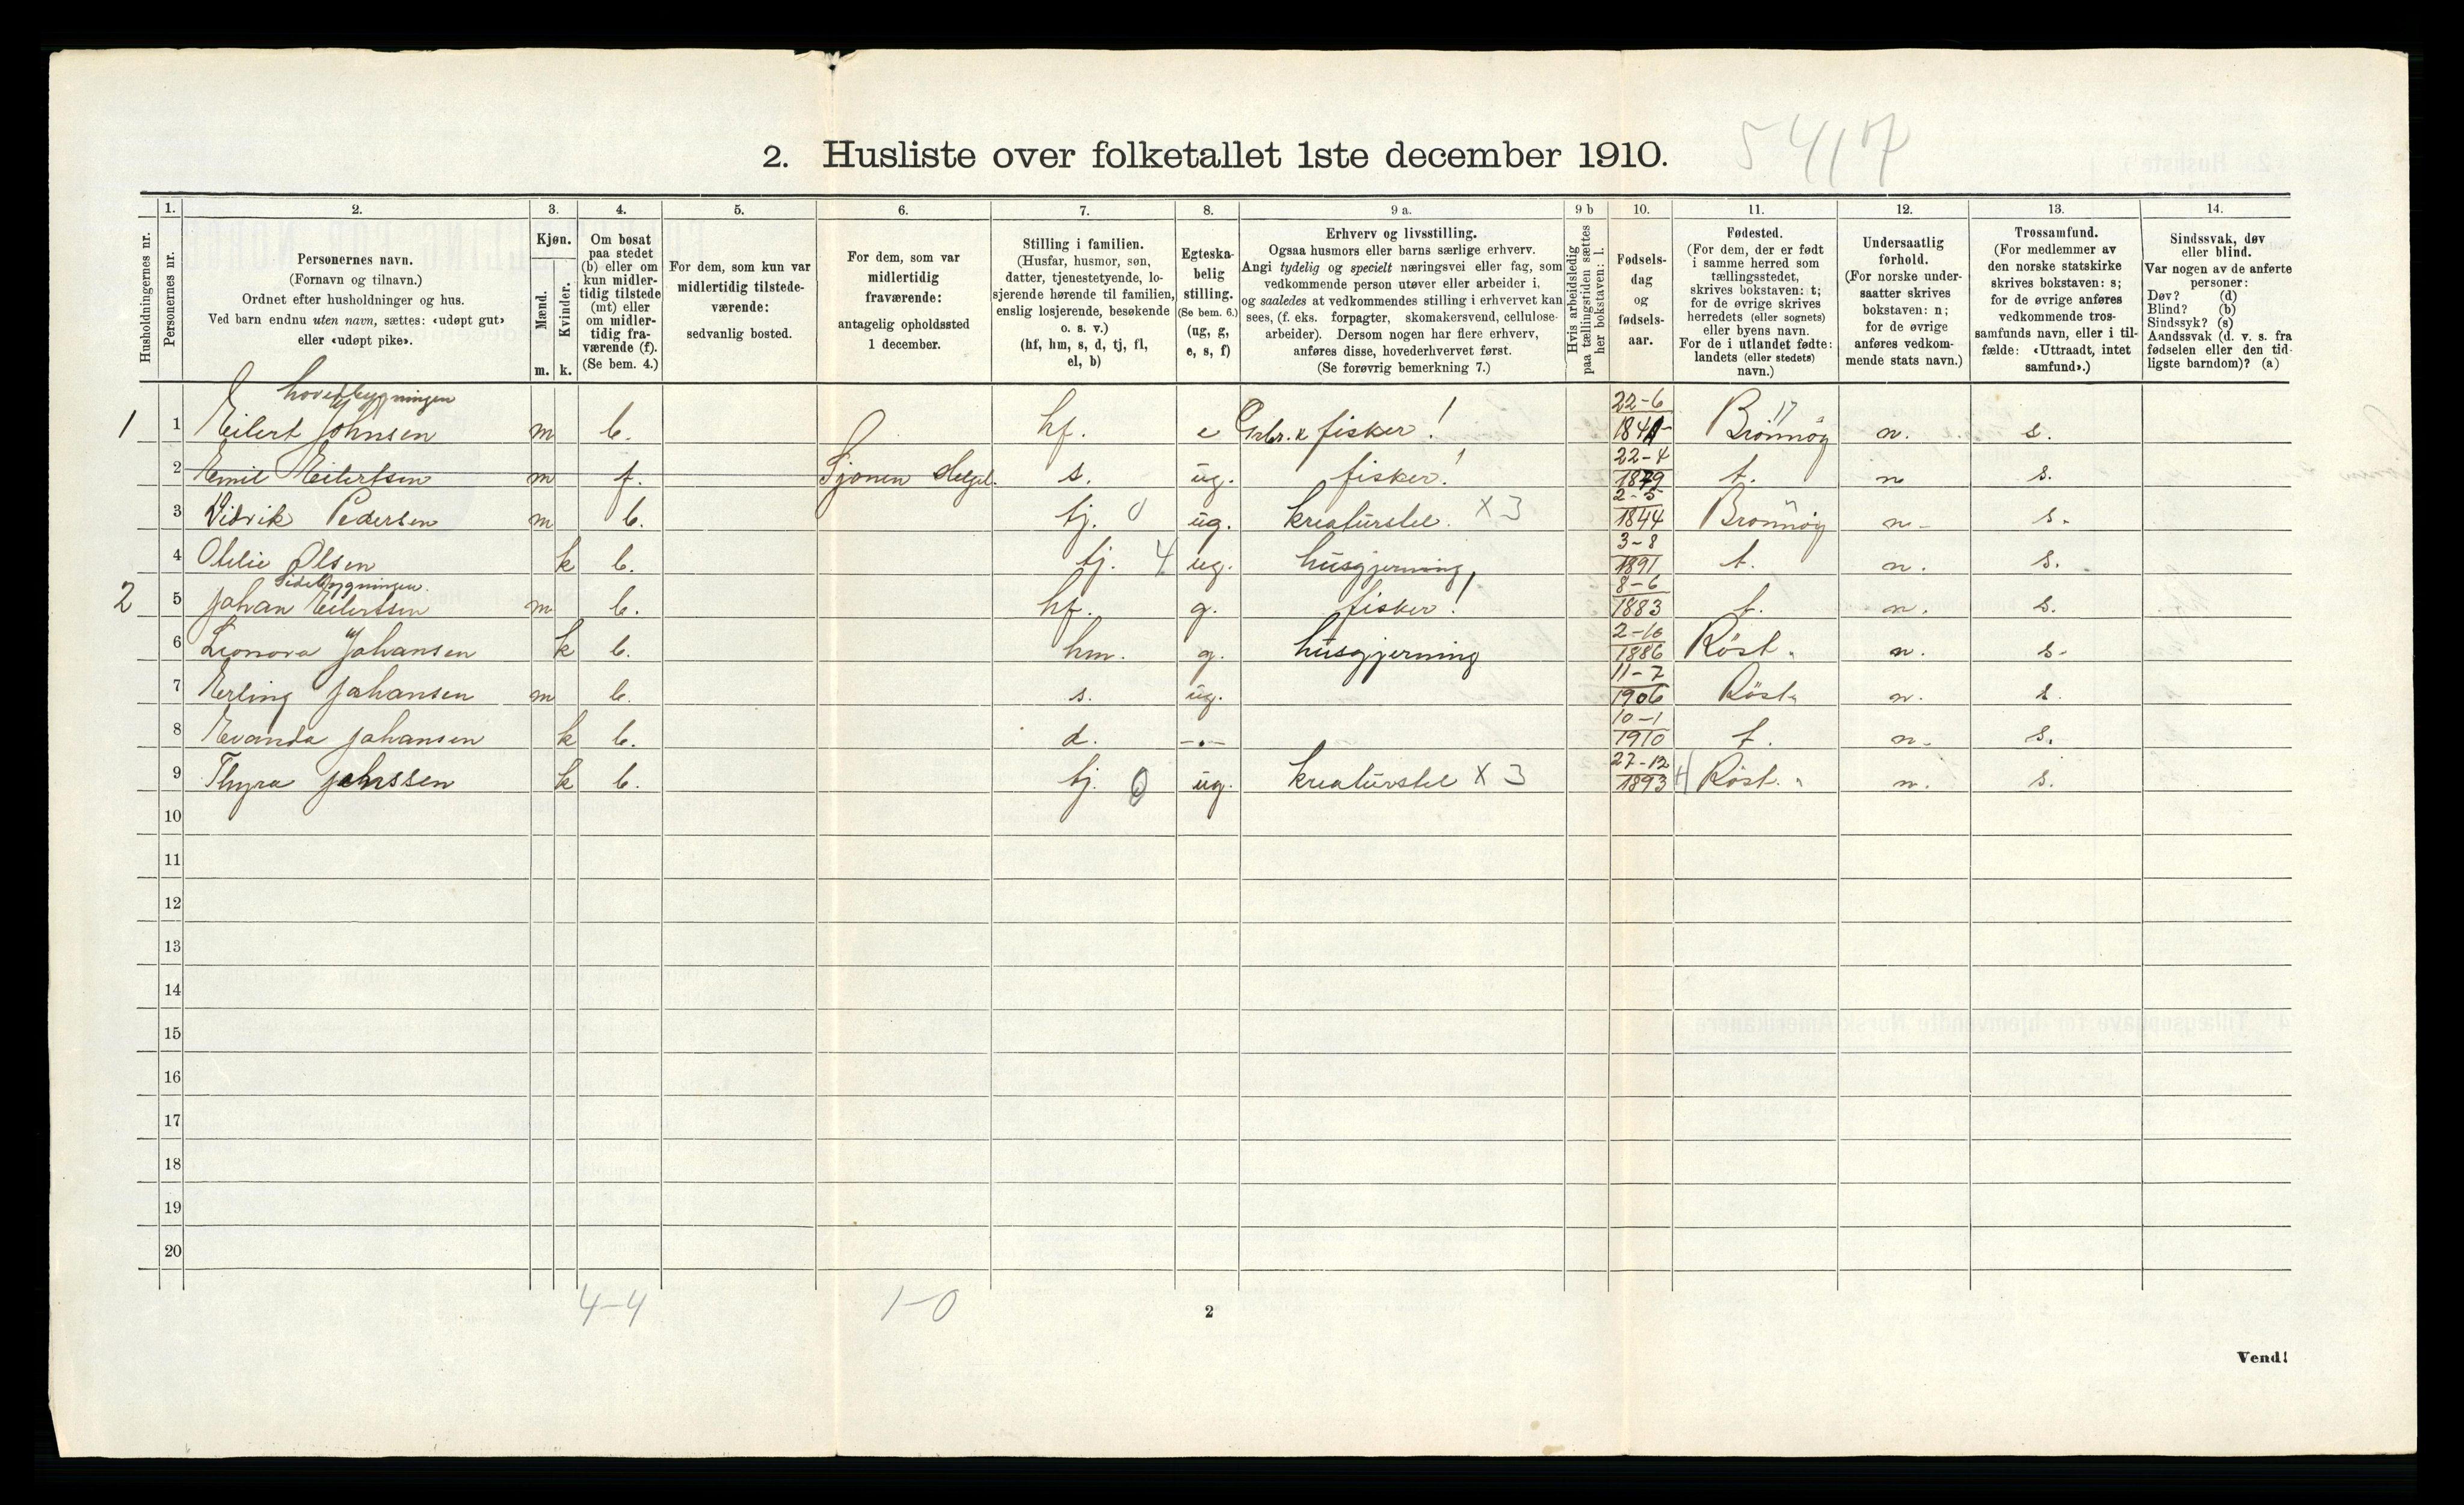 2. Husliste over folketallet 1ste december 1910.
1. 2. 3. 4. 5. 6. 7. 8. 9 a. 9 b 10. 11. 12. 13. 14.
Husholdningernes nr.
Personernes nr.
Personernes navn.
(Fornavn og tilnavn.)
Ordnet efter husholdninger og hus.
Ved barn endnu uten navn, sættes: «udøpt gut»
eller «udøpt pike».
Kjøn.
Mænd.
Kvinder.
m. k.
Om bosat
paa stedet
(b) eller om
kun midler-
tidig tilstede
(mt) eller
om midler-
tidig fra-
værende (f).
(Se bem. 4.)
For dem, som kun var
midlertidig tilstede-
værende:
sedvanlig bosted.
For dem, som var
midlertidig
fraværende:
antagelig opholdssted
1 december.
Stilling i familien.
(Husfar, husmor, søn,
datter, tjenestetyende, lo-
sjerende hørende til familien,
enslig losjerende, besøkende
o. s. v.)
(hf, hm, s, d, tj, fl,
el, b)
Egteska-
belig
stilling.
(Se bem. 6.)
(ug, g,
e, s, f)
Erhverv og livsstilling.
Ogsaa husmors eller barns særlige erhverv.
Angi tydelig og specielt næringsvei eller fag, som
vedkommende person utøver eller arbeider i,
og saaledes at vedkommendes stilling i erhvervet kan
sees, (f. eks. forpagter, skomakersvend, cellulose-
arbeider). Dersom nogen har flere erhverv,
anføres disse, hovederhvervet først.
(Se forøvrig bemerkning 7.)
Hvis arbeidsledig
paa tællingstiden sættes
her bokstaven: l.
Fødsels-
dag
og
fødsels-
aar.
Fødested.
(For dem, der er født
i samme herred som
tællingsstedet,
skrives bokstaven: t;
for de øvrige skrives
herredets (eller sognets)
eller byens navn.
For de i utlandet fødte:
landets (eller stedets)
navn.)
Undersaatlig
forhold.
(For norske under-
saatter skrives
bokstaven: n;
for de øvrige
anføres vedkom-
mende stats navn.)
Trossamfund.
(For medlemmer av
den norske statskirke
skrives bokstaven: s;
for de øvrige anføres
vedkommende tros-
samfunds navn, eller i til-
fælde: «Uttraadt, intet
samfund».)
Sindssvak, døv
eller blind.
Var nogen av de anførte
personer:
Døv? (d)
Blind? (b)
Sindssyk? (s)
Aandssvak (d. v. s. fra
fødselen eller den tid-
ligste barndom)? (a)
hovedbygningen
1 1 Eilert Johnsen m b. hf. e Grbr. & fisker! 22-6 1841 Brønnøy n. s.
2 Emil Eilertsen m f. Sjonen Helgel. s. ug. fisker! 22-4 1879 t. n s.
3 Vidrik Pedersen m b. tj. 0 ug. kreaturstel. X 3 2-5 1844 Brønnøy n. s.
4 Olelie Olsen k b. tj. 4 ug. husgjerning 3-8 1891 t. n. s.
Sidebygningen.
2 5 Johan Eilertsen m b. hf. g. fisker! 8-6 1883 t. n. s.
6 Leonora Johansen k b. hm. g. husgjerning 2-10 1886 Röst. n. s.
7 Erling Johansen m b. s. ug. 11-7 1906 Röst n. s.
8 Evanda Johansen k b. d. -"- 10-1 1910 t. n. s.
9 Thyra Johnssen k b. tj. 0 ug. kreaturstel X 3 27-12 1893 Röst. n. s.
10
11
12
13
14
15
16
17
18
19
20
4-4 1-0
2
Vend!